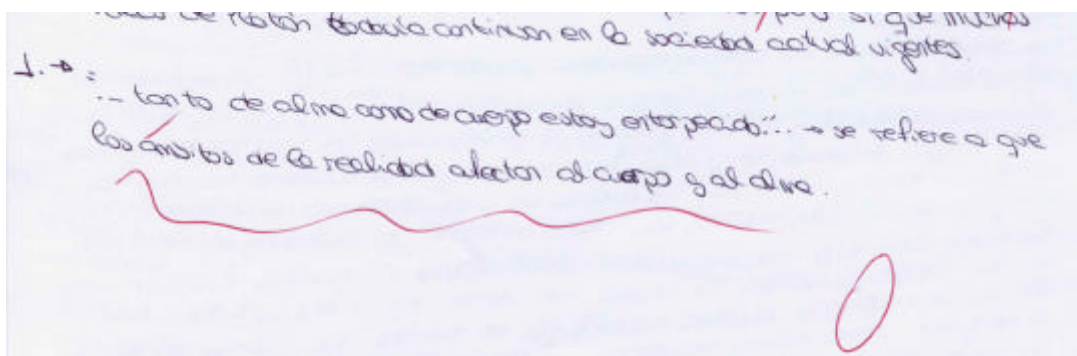 de Platón todavía continuan en la sociedad actual vigentes.
1. → :
"..- tanto de alma como de cuerpo estoy entorpecido"... → se refiere a que
los ámbitos de la realidad afectan al cuerpo y al alma.
0